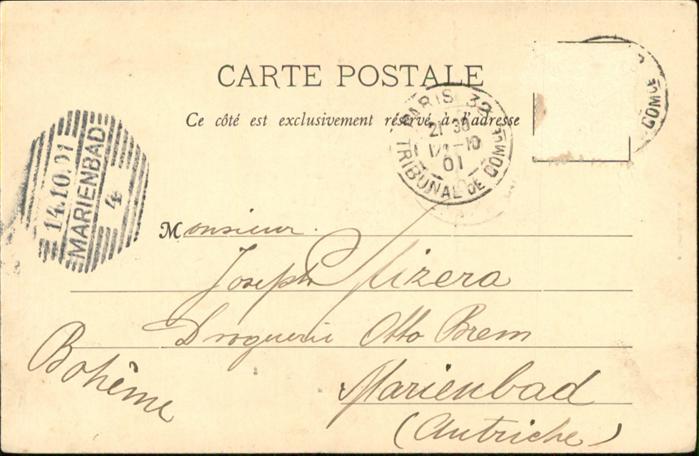 CARTE POSTALE
Ce côté est exclusivement réservé à l'adresse
PARIS 32
21 30
10
01
TRIBUNAL DE COMCE
COMCE
14.10.01
MARIENBAD
4
Monsieur
Joseph Mizera
Droguerie Otto Brem
Marienbad
(Autriche)
Bohême